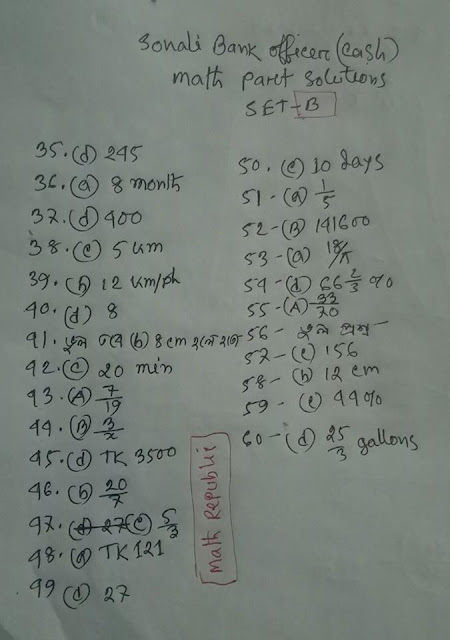 Sonali Bank officer (cash)
math part solutions
SET-B
35. (d) 245
36. (a) 8 month
37. (d) 400
38. (c) 5 km
39. (b) 12 km/ph
40. (d) 8
41. ভুল তবে (b) 8 cm হলে হবে
42. (c) 20 min
43. (A) 7/19
44. (B) 3/2
45. (d) TK 3500
46. (b) 20/7
47. (d) 27 (c) 5/3
48. (a) TK 121
49 (d) 27
50. (c) 10 days
51 - (a) 1/5
52 - (B) 141600
53 - (a) 18/π
54 - (d) 66 2/3 %
55 - (A) 33/70
56 - ভুল প্রশ্ন -
57 - (c) 156
58 - (b) 12 cm
59 - (c) 44%
60 - (d) 25/3 gallons
Math Republic